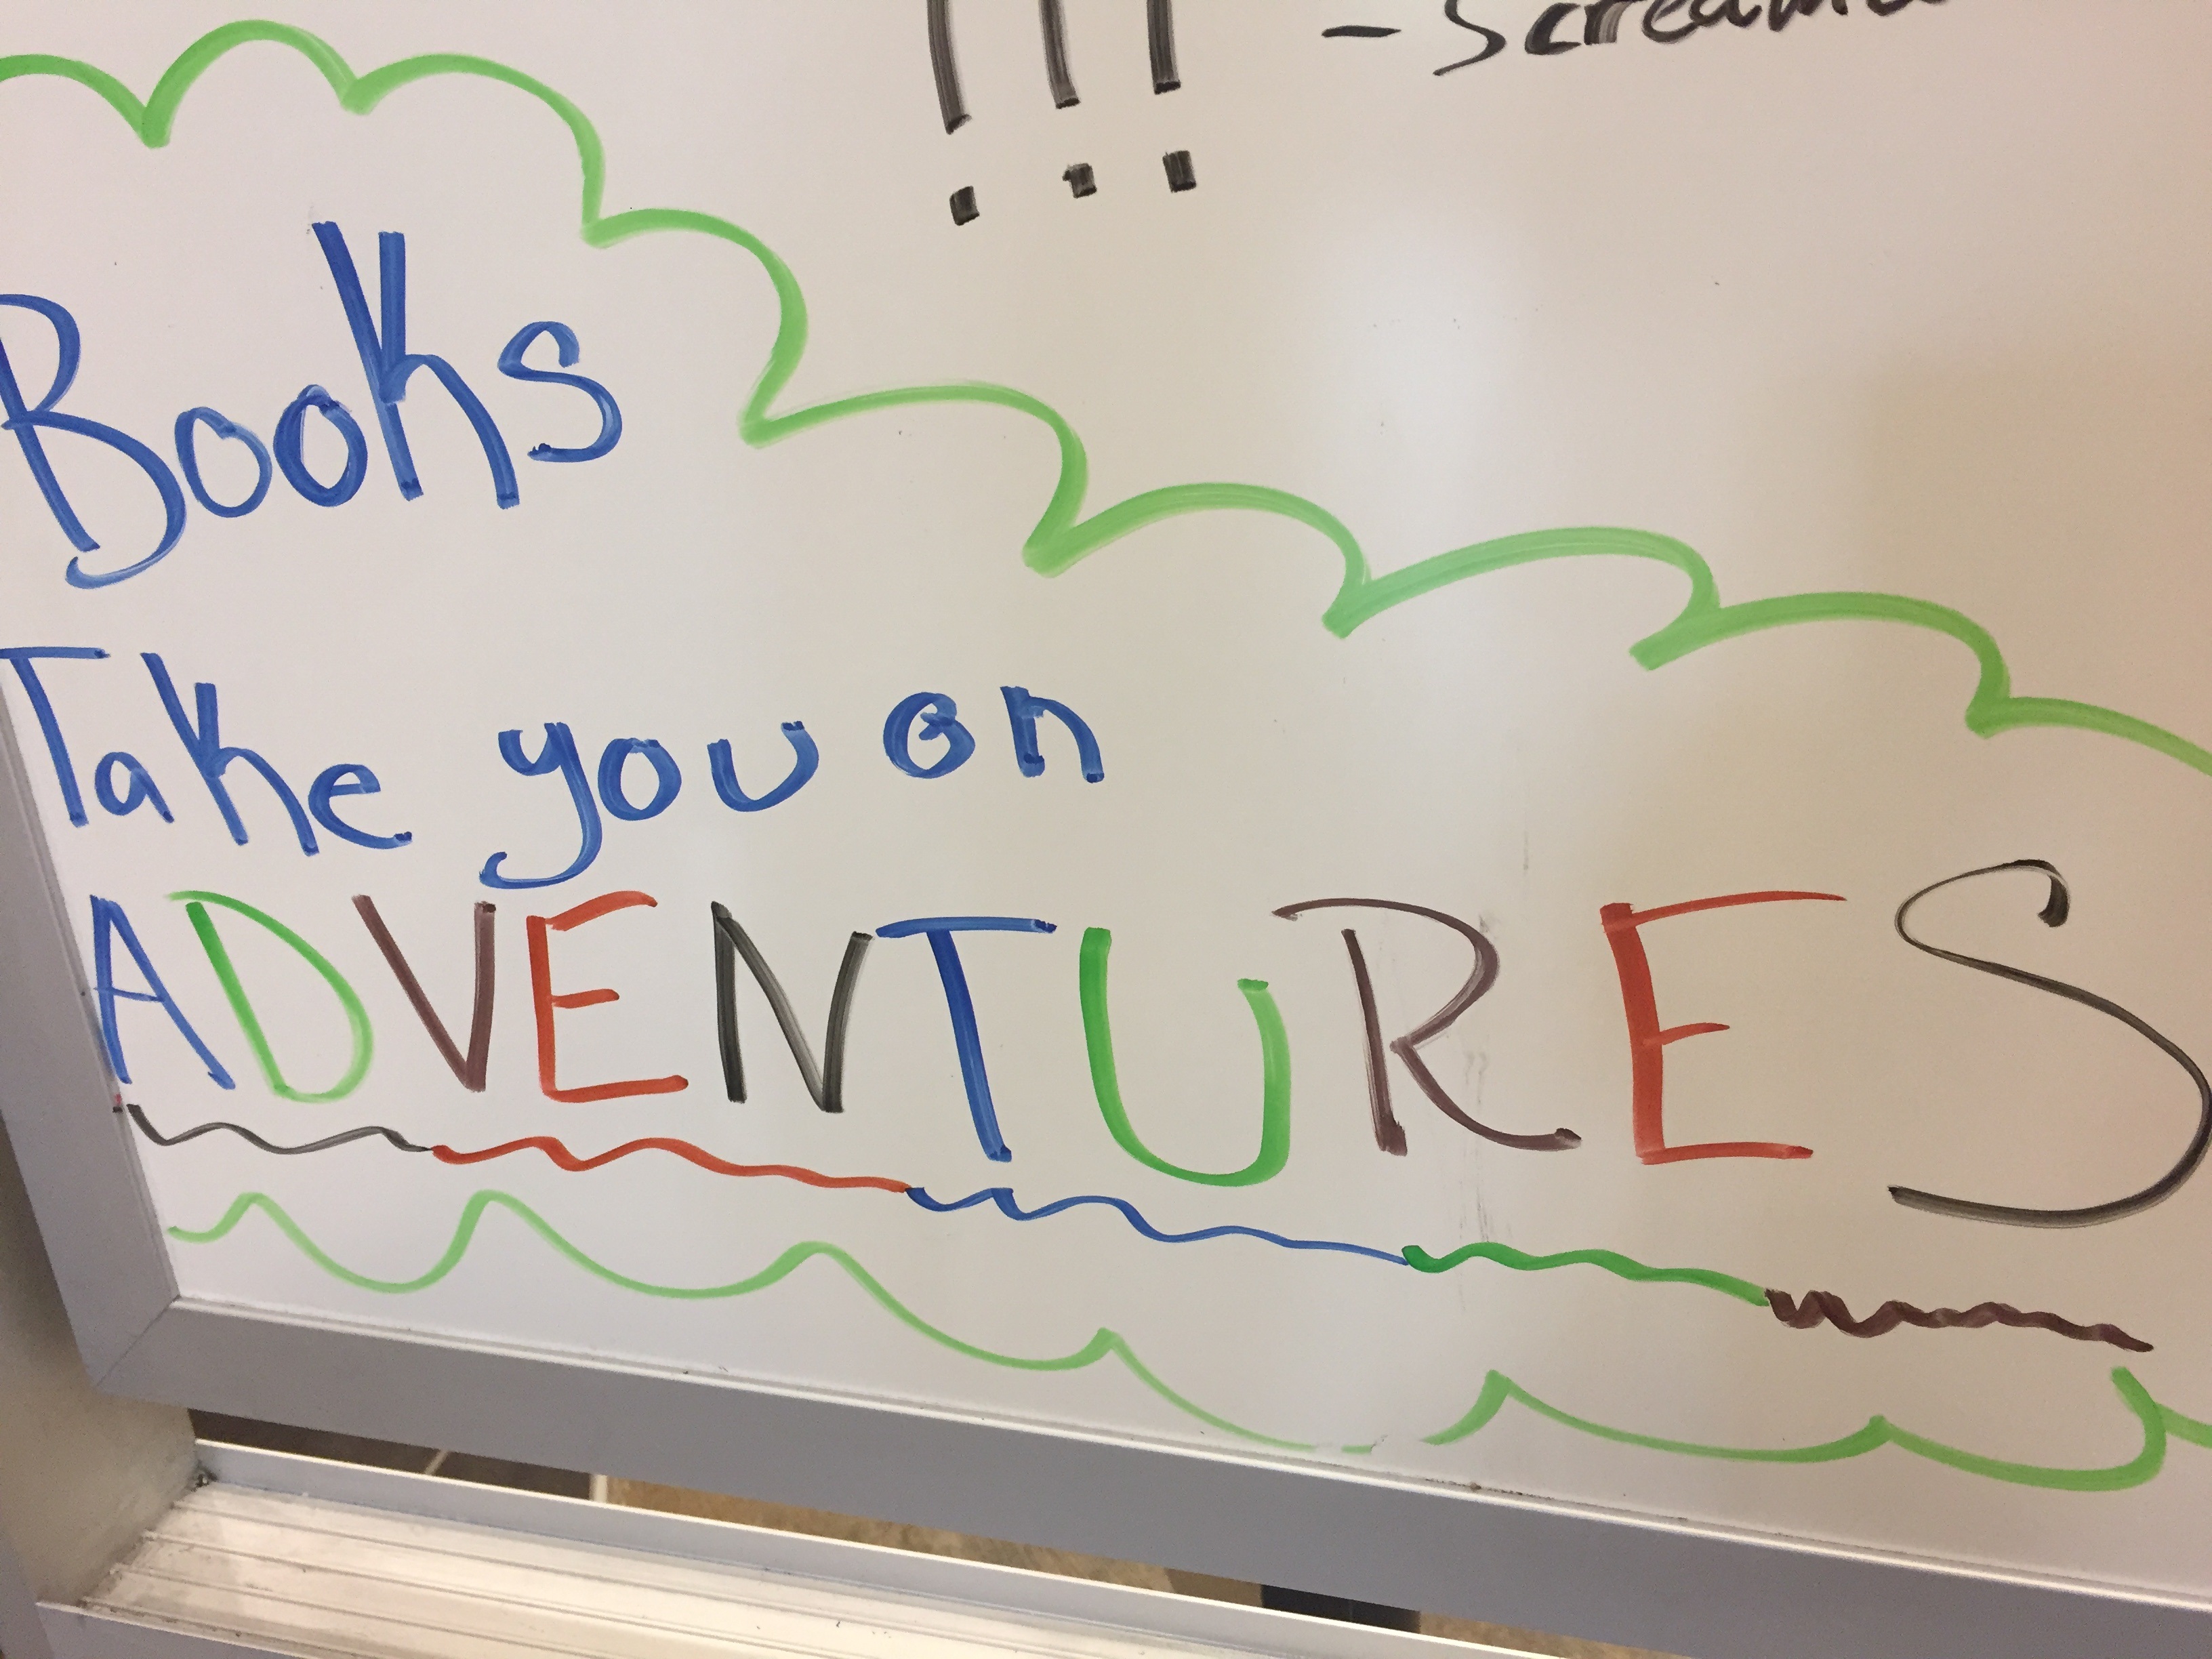 !!!
Books
Take you on
ADVENTURES